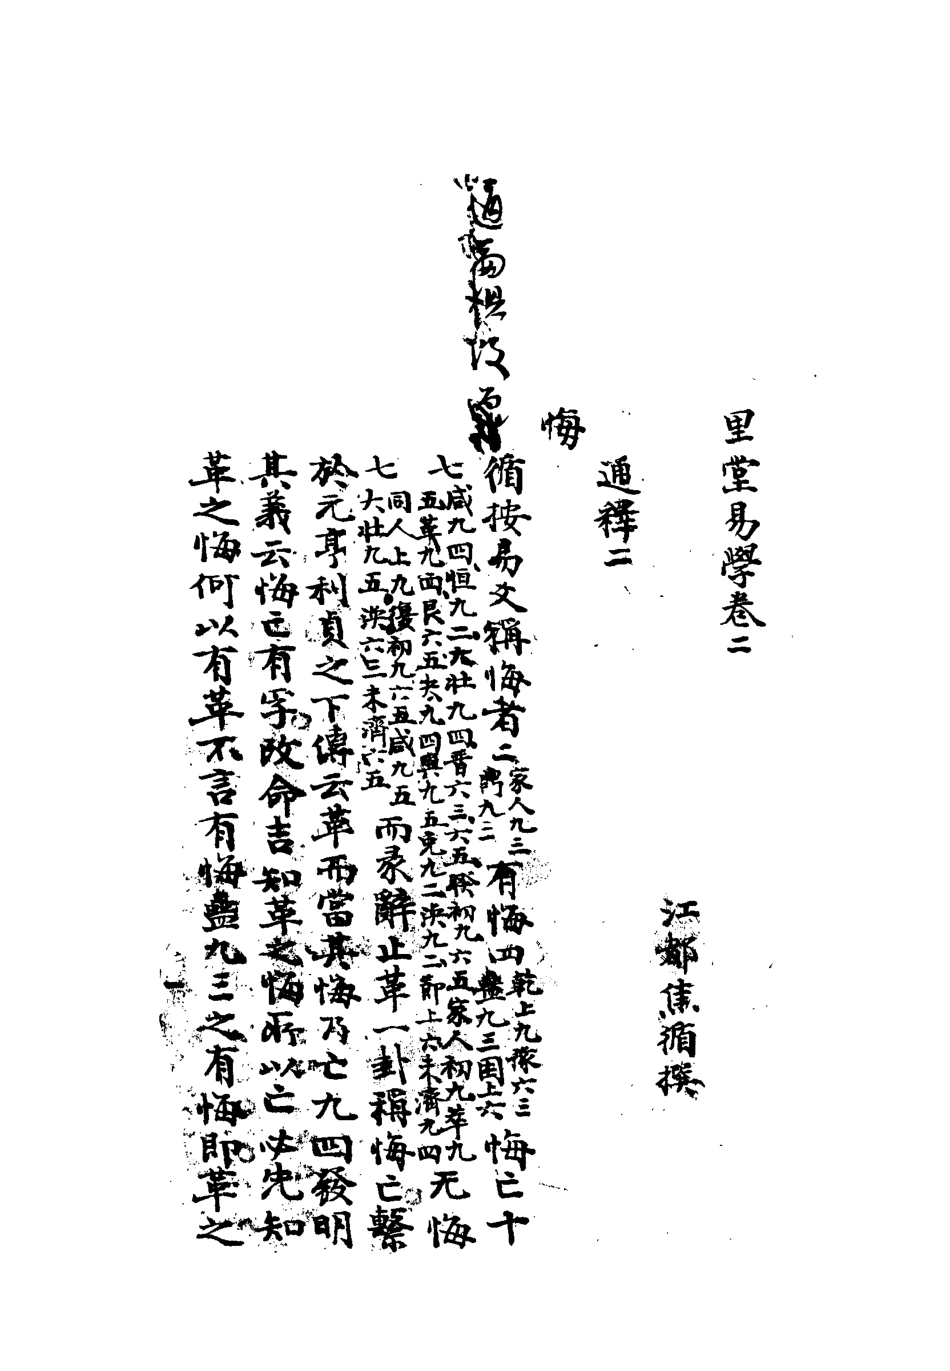 里堂易學卷二
江都焦循撰
通釋二
悔
循按易文稱悔者二家人九三鼎九三有悔四乾上九豫六三蠱九三困上六悔亡十
七咸九四恒九二大壯九四晉六三六五睽初九六五家人初九萃九五革九四艮六五夬九四巽九五兌九二渙九二節上六未濟九四无悔
七同人上九復初九六五咸九五大壯九五渙六三未濟六五而彖辭止革一卦稱悔亡繫
於元亨利貞之下傳云革而當其悔乃亡九四發明
其義云悔亡有孚改命吉知革之悔所以亡必先知
革之悔何以有革不言有悔蠱九三之有悔即革之